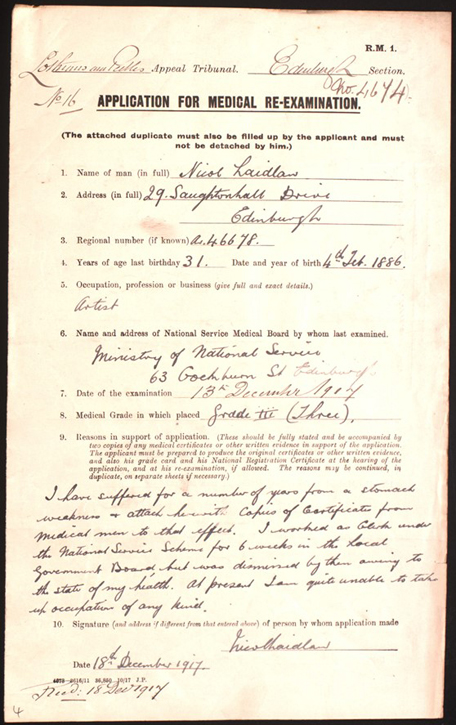 R.M. 1.
Lothians and Peebles Appeal Tribunal. Edinburgh Section.
No. 16 (No. 4674).
APPLICATION FOR MEDICAL RE-EXAMINATION.
(The attached duplicate must also be filled up by the applicant and must
not be detached by him.)
1. Name of man (in full) Nicol Laidlaw
2. Address (in full) 29. Saughtonhall Drive
Edinburgh
3. Regional number (if known) Ac. 46678.
4. Years of age last birthday 31. Date and year of birth 4th Feb. 1886.
5. Occupation, profession or business (give full and exact details.)
Artist
6. Name and address of National Service Medical Board by whom last examined.
Ministry of National Service
63 Cockburn St Edinburgh
7. Date of the examination 13th December 1917
8. Medical Grade in which placed Grade III (Three).
9. Reasons in support of application. (These should be fully stated and be accompanied by
two copies of any medical certificates or other written evidence in support of the application.
The applicant must be prepared to produce the original certificates or other written evidence,
and also his grade card and his National Registration Certificate at the hearing of the
application, and at his re-examination, if allowed. The reasons may be continued, in
duplicate, on separate sheets if necessary.)
I have suffered for a number of years from a stomach
weakness & attach herewith Copies of Certificates from
Medical men to that effect. I worked as Clerk under
the National Service Scheme for 6 weeks in the Local
Government Board, but was dismissed by them owing to
the state of my health. At present I am quite unable to take
up occupation of any kind.
10. Signature (and address if different from that entered above) of person by whom application made
Nicol Laidlaw
Date 18th December 1917.
18 Dec 1917
4